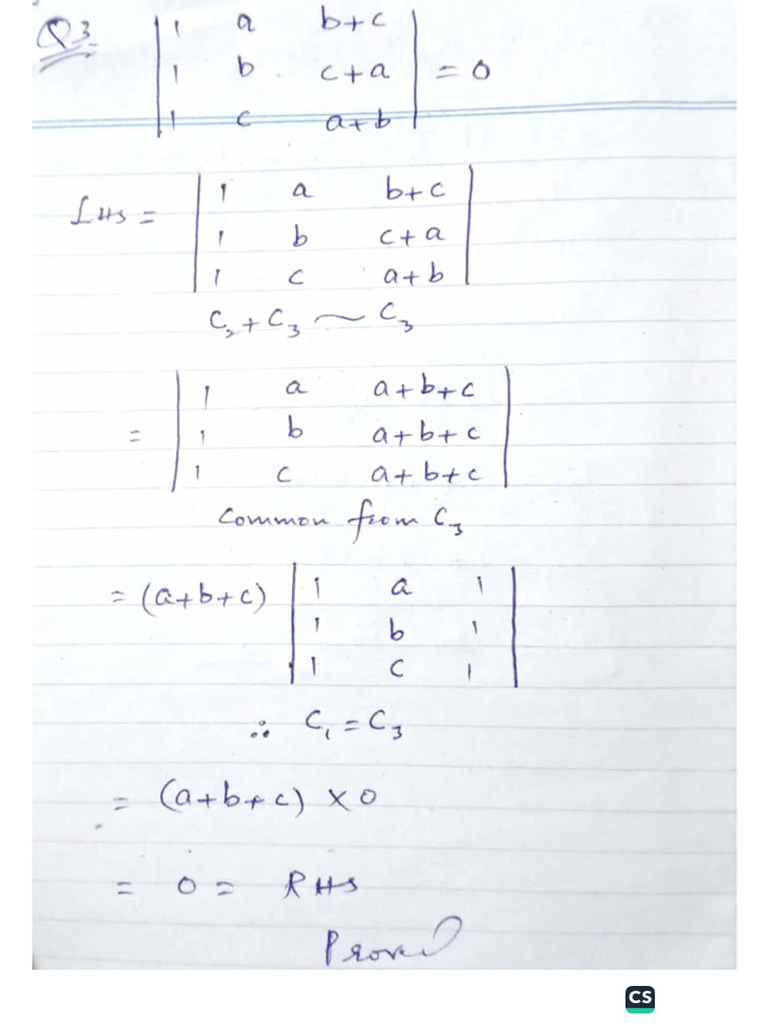 Q3 | 1 a b+c |
| 1 b c+a | = 0
| 1 c a+b |
LHS = | 1 a b+c |
| 1 b c+a |
| 1 c a+b |
C₂ + C₃ ~ C₃
= | 1 a a+b+c |
| 1 b a+b+c |
| 1 c a+b+c |
Common from C₃
= (a+b+c) | 1 a 1 |
| 1 b 1 |
| 1 c 1 |
∴ C₁ = C₃
= (a+b+c) × 0
= 0 = RHS
Proved
CS